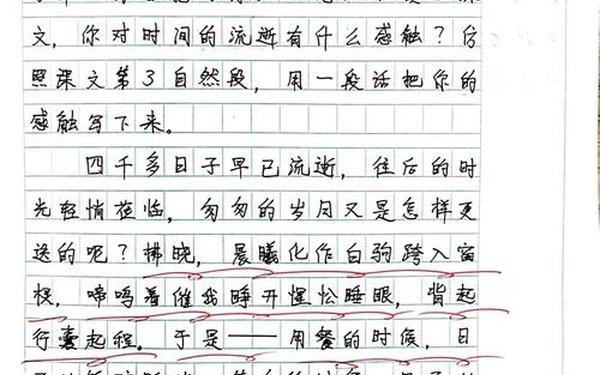 文，你对时间的流逝有什么感触？仿
照课文第3自然段，用一段话把你的
感触写下来。
四千多日子早已流逝，往后的时
光轻悄莅临，匆匆的岁月又是怎样更
迭的呢？拂晓，晨曦化作白驹跨入窗
棂，啼鸣着催我睁开惺忪睡眼，背起
行囊起程。于是——用餐的时候，日